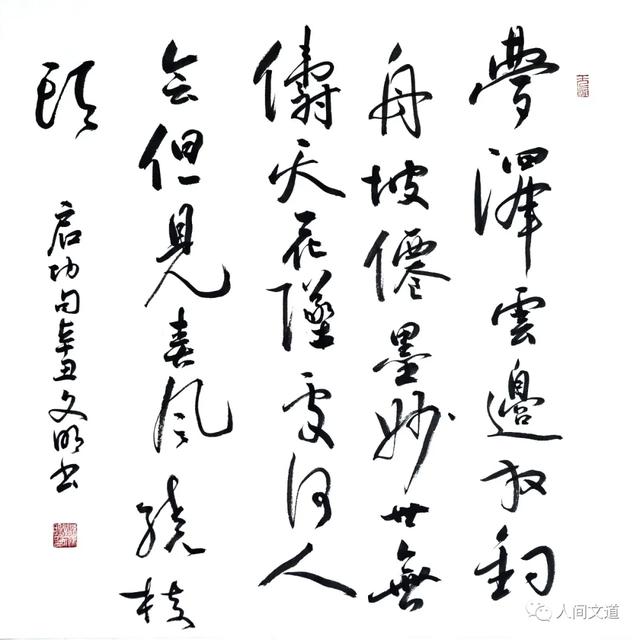 夢澤雲邊放釣
舟坡僊墨妙世無
儔天花墜處何人
会但見春風繞枝
頭
启功句辛丑文明书
人间文道